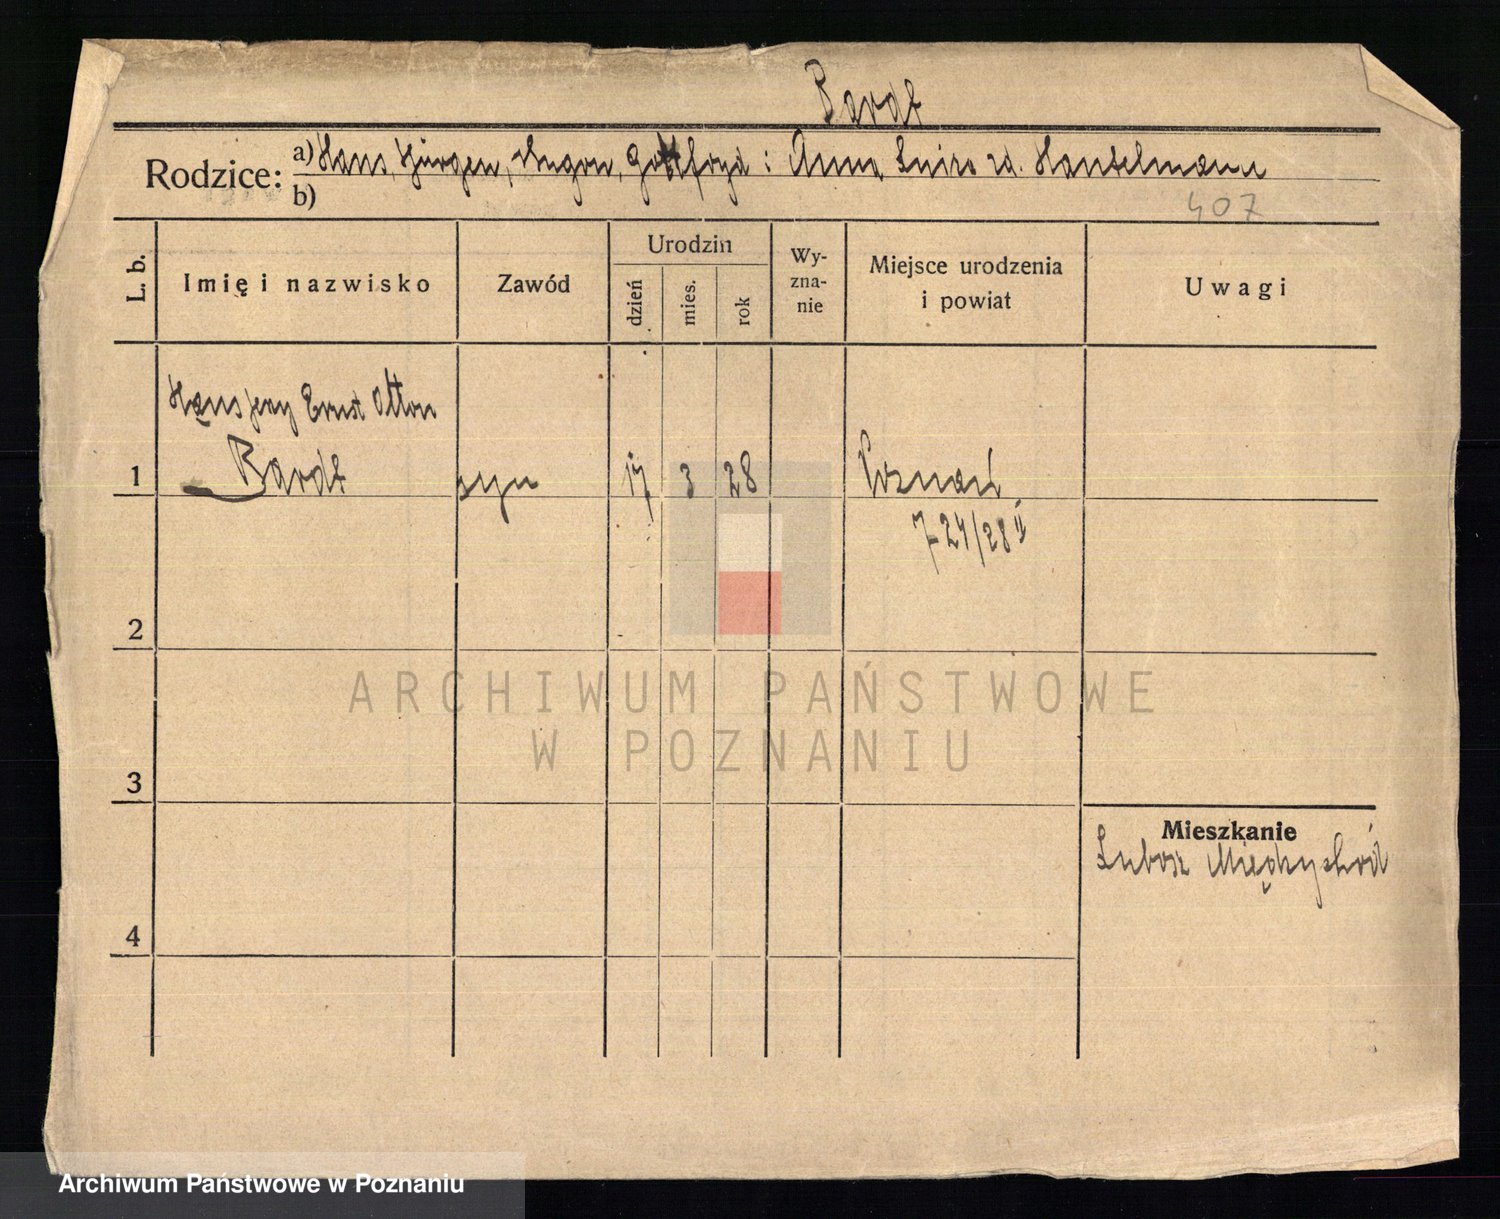 Bardt
Rodzice: a) Hans, Jürgen, Eugon, Gottfryd : Anna Luiza zd. Hantelmann
b)
407
L. b. Imię i nazwisko Zawód Urodzin dzień mies. rok Wy-zna-nie Miejsce urodzenia i powiat Uwagi
Hans Ernst Otton
1 Bardt syn 17 3 28 Poznań
724/28 II
2
ARCHIWUM PAŃSTWOWE
W POZNANIU
3
Mieszkanie
Lubosz Międzychód
4
Archiwum Państwowe w Poznaniu